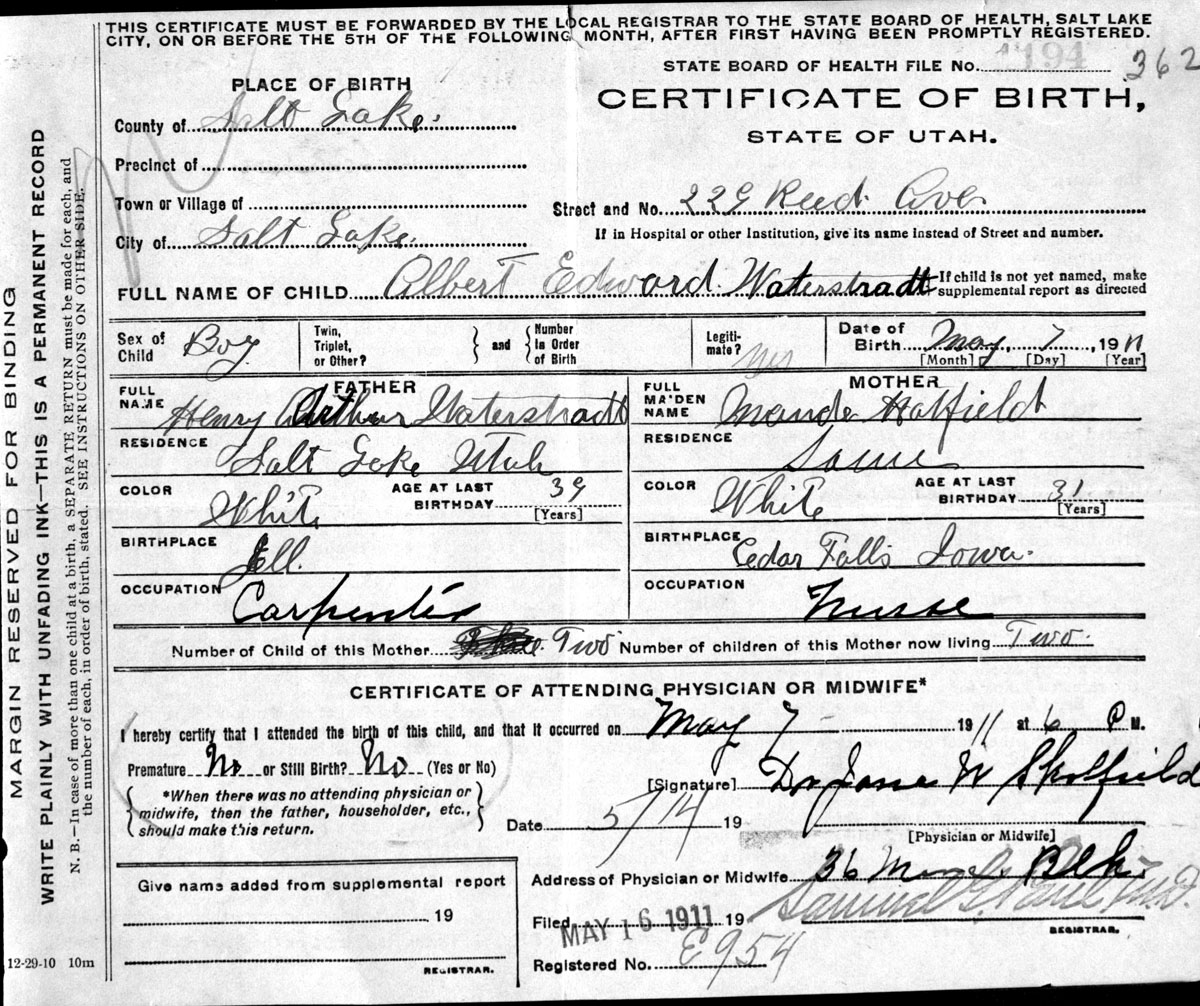 THIS CERTIFICATE MUST BE FORWARDED BY THE LOCAL REGISTRAR TO THE STATE BOARD OF HEALTH, SALT LAKE
CITY, ON OR BEFORE THE 5TH OF THE FOLLOWING MONTH, AFTER FIRST HAVING BEEN PROMPTLY REGISTERED.
STATE BOARD OF HEALTH FILE No. 1194 362
PLACE OF BIRTH
CERTIFICATE OF BIRTH,
STATE OF UTAH.
County of Salt Lake.
Precinct of
Town or Village of
Street and No. 229 Reed Ave
City of Salt Lake.
If in Hospital or other Institution, give its name instead of Street and number.
FULL NAME OF CHILD Albert Edward Waterstradt If child is not yet named, make supplemental report as directed
Sex of Child Boy Twin, Triplet, or Other? and Number in Order of Birth Legitimate? Yes Date of Birth May 7, 1911
[Month] [Day] [Year]
FATHER
MOTHER
FULL NAME Henry Arthur Waterstradt
FULL MAIDEN NAME Maude Hatfield
RESIDENCE Salt Lake Utah
RESIDENCE Same
COLOR White AGE AT LAST BIRTHDAY 39 [Years]
COLOR White AGE AT LAST BIRTHDAY 31 [Years]
BIRTHPLACE Ill.
BIRTHPLACE Cedar Falls Iowa.
OCCUPATION Carpenter
OCCUPATION Nurse
Number of Child of this Mother Two Number of children of this Mother now living Two.
CERTIFICATE OF ATTENDING PHYSICIAN OR MIDWIFE*
I hereby certify that I attended the birth of this child, and that it occurred on May 7 1911 at 6 P M.
Premature No or Still Birth? No (Yes or No)
[Signature] Dr Jane W Skolfield
*When there was no attending physician or midwife, then the father, householder, etc., should make this return.
Date 5/14 19
[Physician or Midwife]
Give name added from supplemental report
19
REGISTRAR.
Address of Physician or Midwife 36 Blk
Filed MAY 16 1911 19 Samuel G. Paul M.D.
REGISTRAR.
Registered No. E954
12-29-10 10m
MARGIN RESERVED FOR BINDING
WRITE PLAINLY WITH UNFADING INK—THIS IS A PERMANENT RECORD
N. B.—In case of more than one child at a birth, a SEPARATE RETURN must be made for each, and
the number of each, in order of birth, stated. SEE INSTRUCTIONS ON OTHER SIDE.